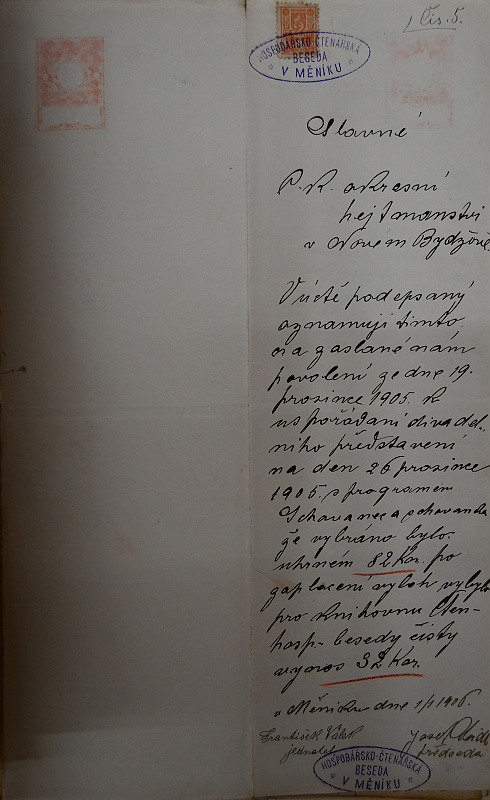 Čís. 5.
HOSPODÁŘSKO-ČTENÁŘSKÁ
BESEDA
V MĚNÍKU
Slavné
C. K. okresní
hejtmanství
v Novém Bydžově
V úctě podepsaný
oznamuji tímto
na zaslané nám
povolení ze dne 19.
prosince 1905. k
uspořádání divadel-
ního představení
na den 26 prosince
1905. s programem
Schovanec a schovanka
že vybráno bylo
úhrnem 82 Kor. po
zaplacení výloh vybylo
pro knihovnu čten-
hosp. besedy čistý
výnos 32 Kor.
v Měníku dne 1/1 1906.
František Válek
jednatel
Josef
předseda
HOSPODÁŘSKO-ČTENÁŘSKÁ
BESEDA
V MĚNÍKU